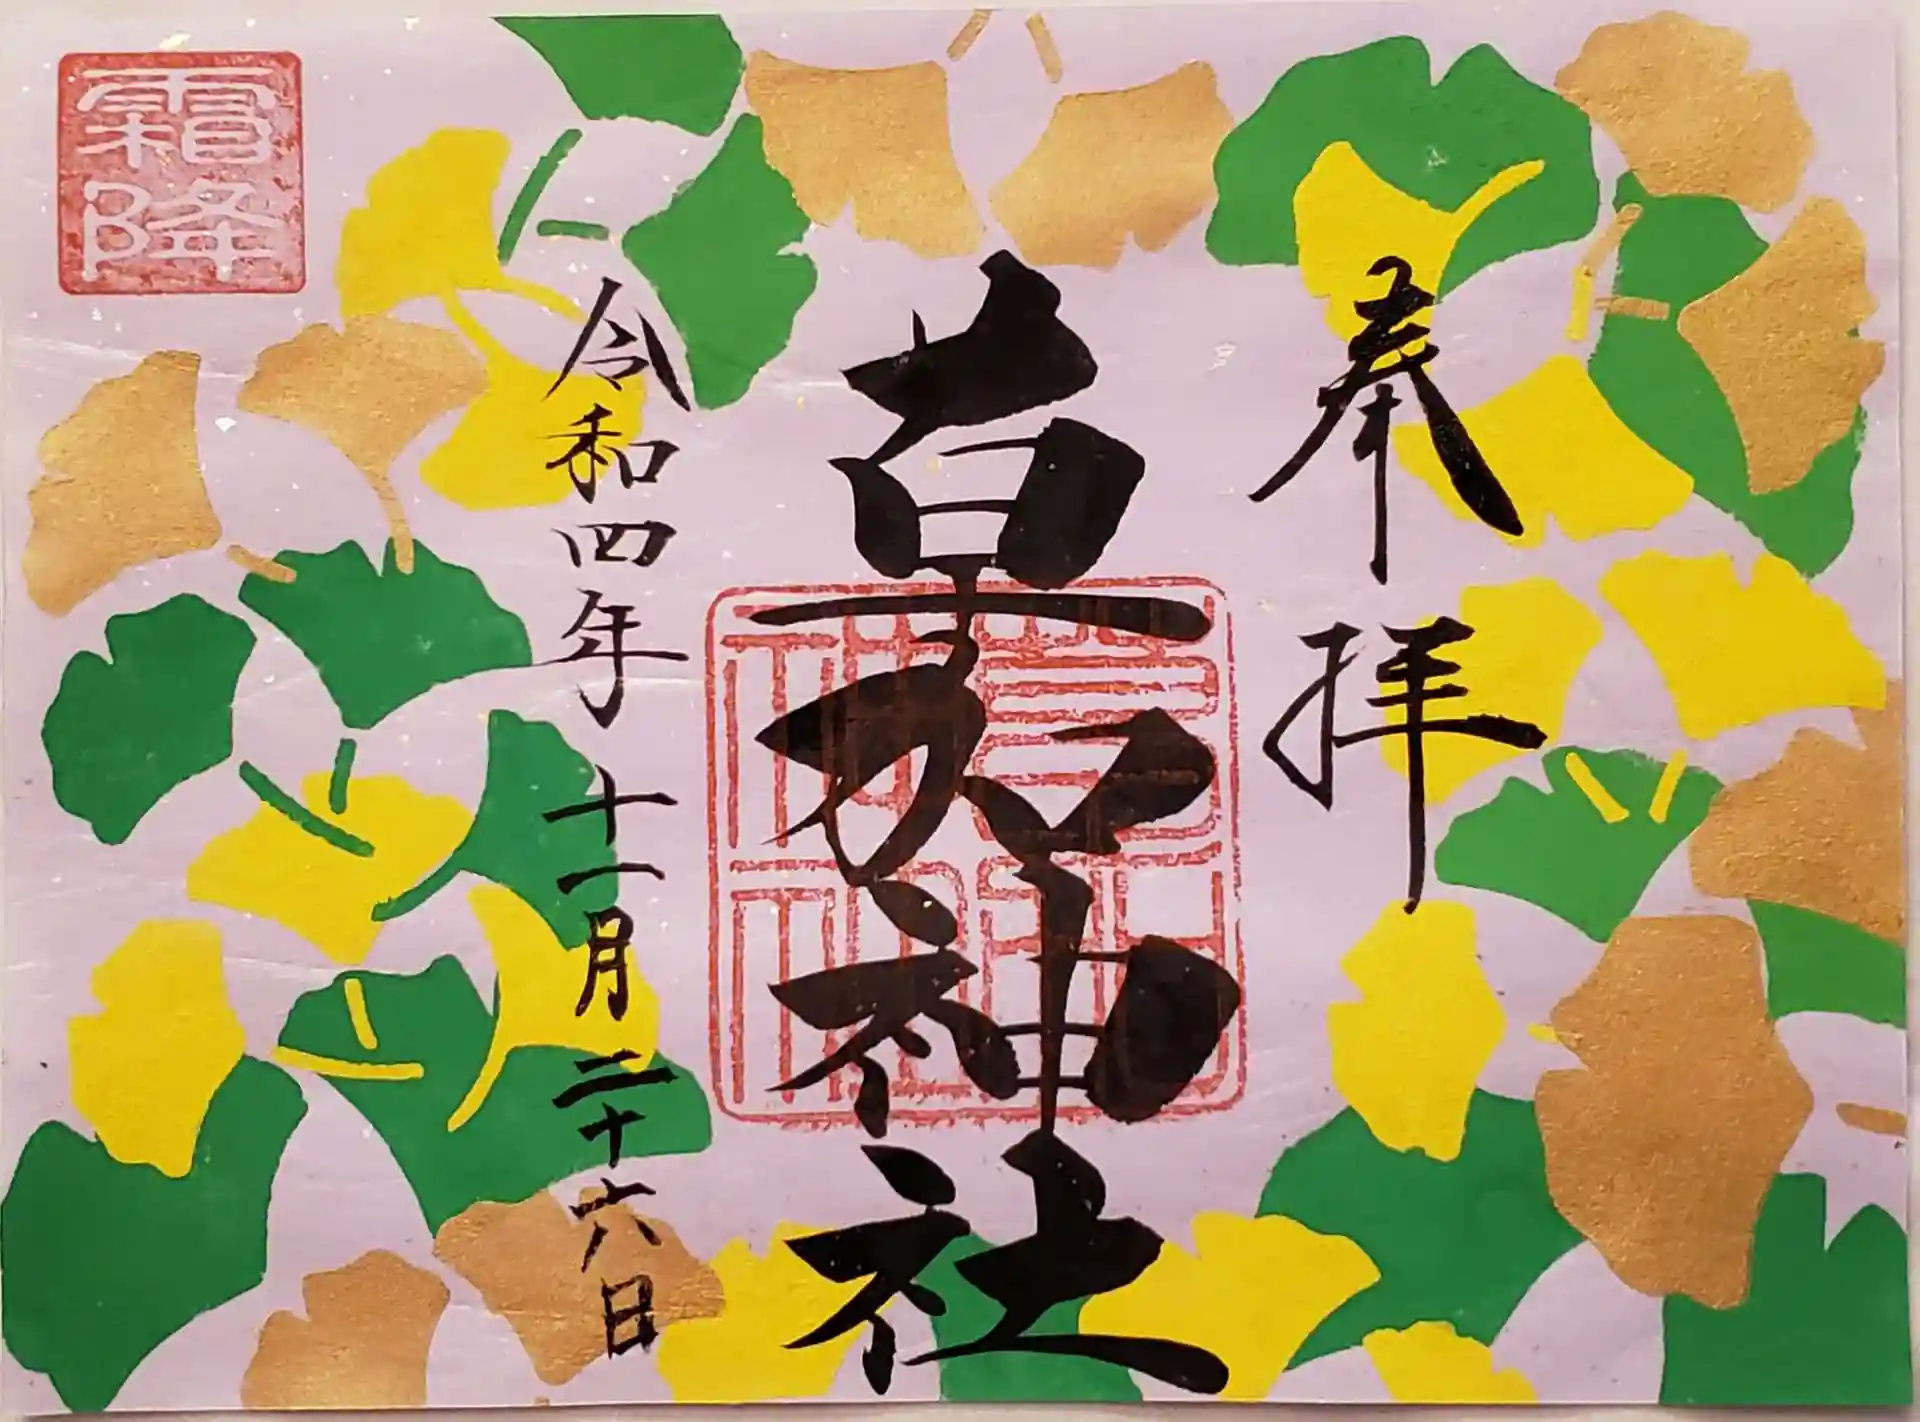 奉拝
草加神社
令和四年十一月二十六日
霜降